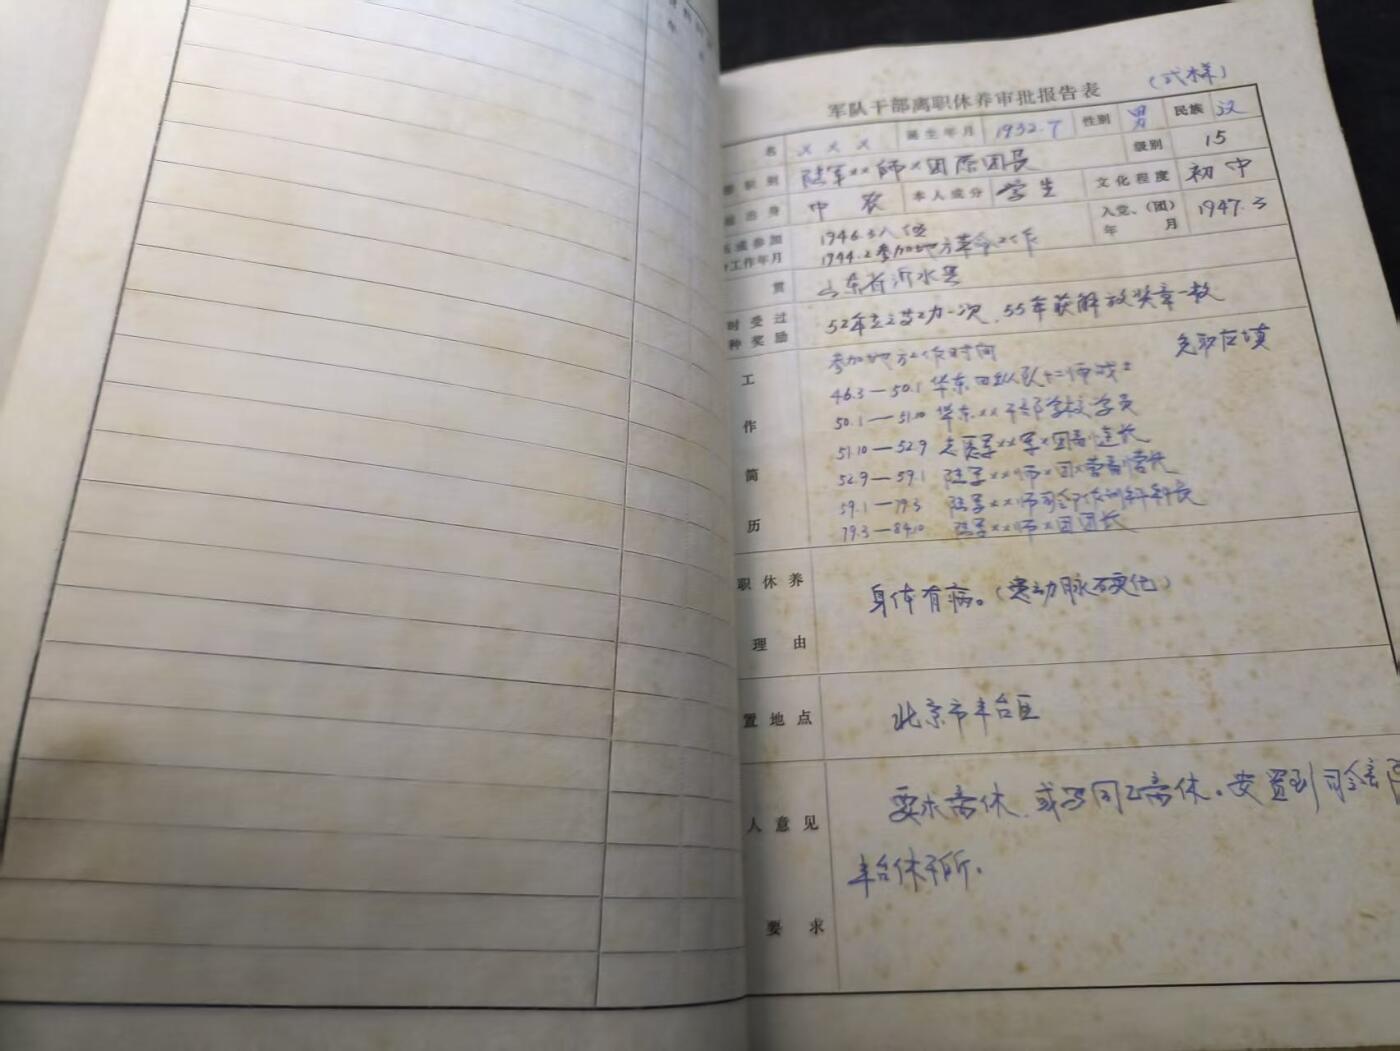 军队干部离职休养审批报告表 (式样)
名 ××× 诞生年月 1932.7 性别 男 民族 汉
部职别 陆军××师×团原团长 级别 15
庭出身 中农 本人成分 学生 文化程度 初中
伍或参加 1946.3入伍 入党、(团) 1947.3
命工作年月 1944.2参加地方革命工作 年 月
贯 山东省沂水县
时受过 52年立三等功一次、55年获解放奖章一枚
种奖励
参加地方工作时间 免职应填
工 46.3—50.1 华东四纵队十二师战士
作 50.1—51.10 华东××干部学校学员
51.10—52.9 志愿军××军×团副连长
简 52.9—59.1 陆军××师×团×营副营长
59.1—79.3 陆军××师司令部作训科科长
历 79.3—84.10 陆军××师×团团长
职休养 身体有病。(动脉硬化)
理由
置地点 北京市丰台区
人意见 要求离休,或同意离休。安置到司令部
丰台休干所.
要求